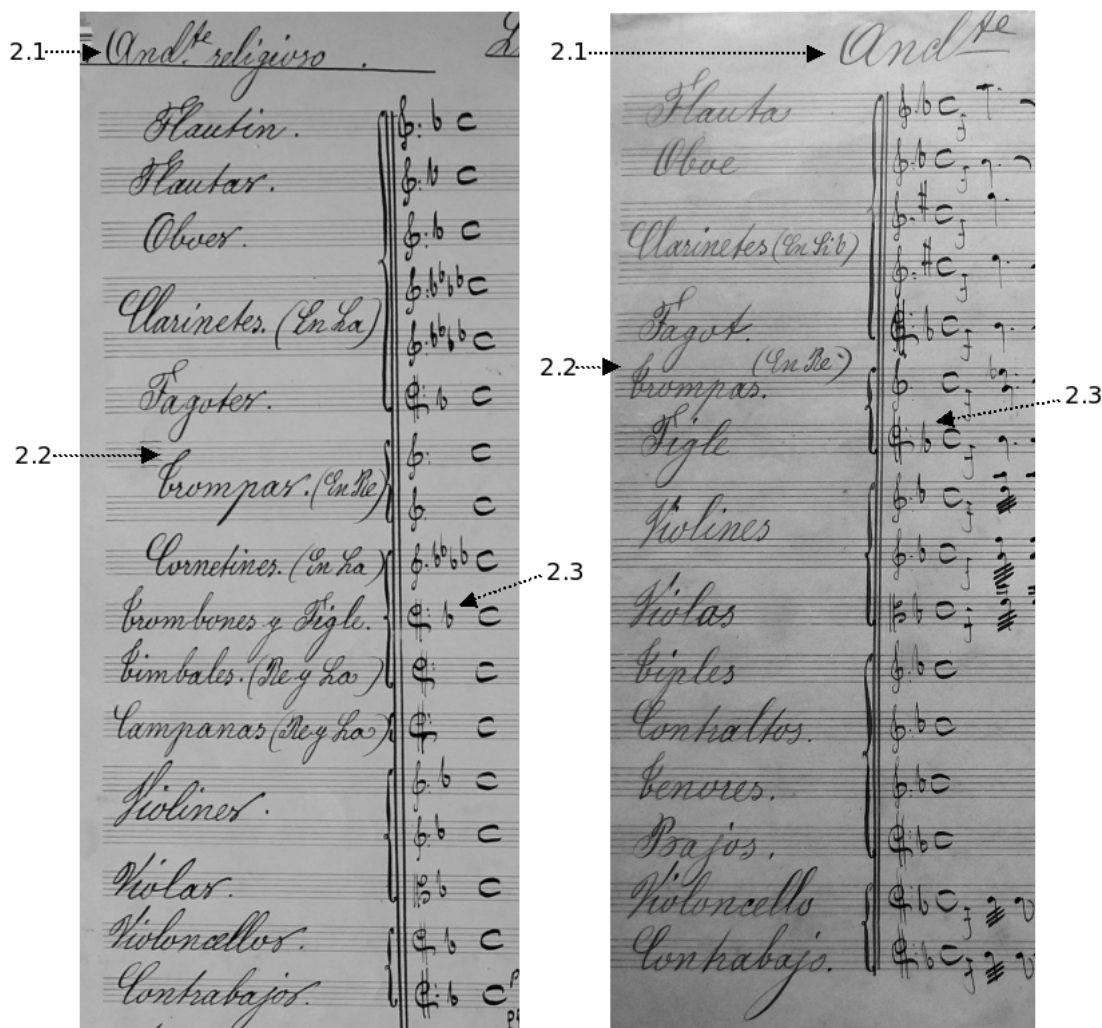 2.1
And.te religioso.
Flautin.
Flautas.
Oboes.
Clarinetes. (En La)
Fagotes.
2.2
Trompas. (En Re)
Cornetines. (En La)
2.3
Trombones y Figle.
Timbales. (Re y La)
Campanas (Re y La)
Violines.
Violas.
Violoncellos.
Contrabajos.
2.1
Andte
Flauta
Oboe
Clarinetes (En Sib)
Fagot.
2.2
(En Re)
Trompas.
2.3
Figle
Violines
Violas
Tiples
Contraltos.
Tenores.
Bajos.
Violoncello
Contrabajo.